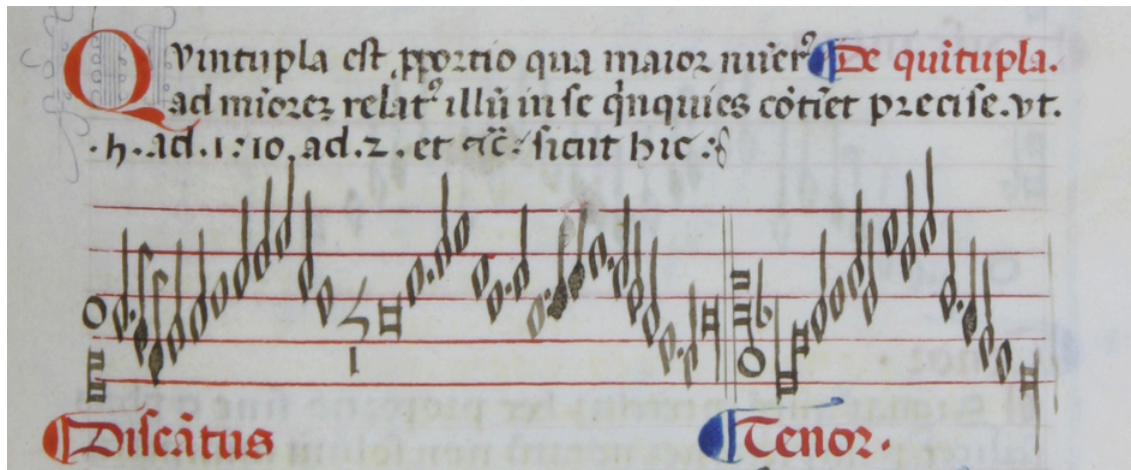 Quintupla est ꝓportio qua maior nũerꝰ ¶De quĩtupla.
ad mĩorez relatꝰ illũ in se qͥnquies cõtĩet precise. vt.
.5. ad. 1: 10. ad. 2. et cͣ sicut hic:
5
1
¶Discãtus
¶Tenor.